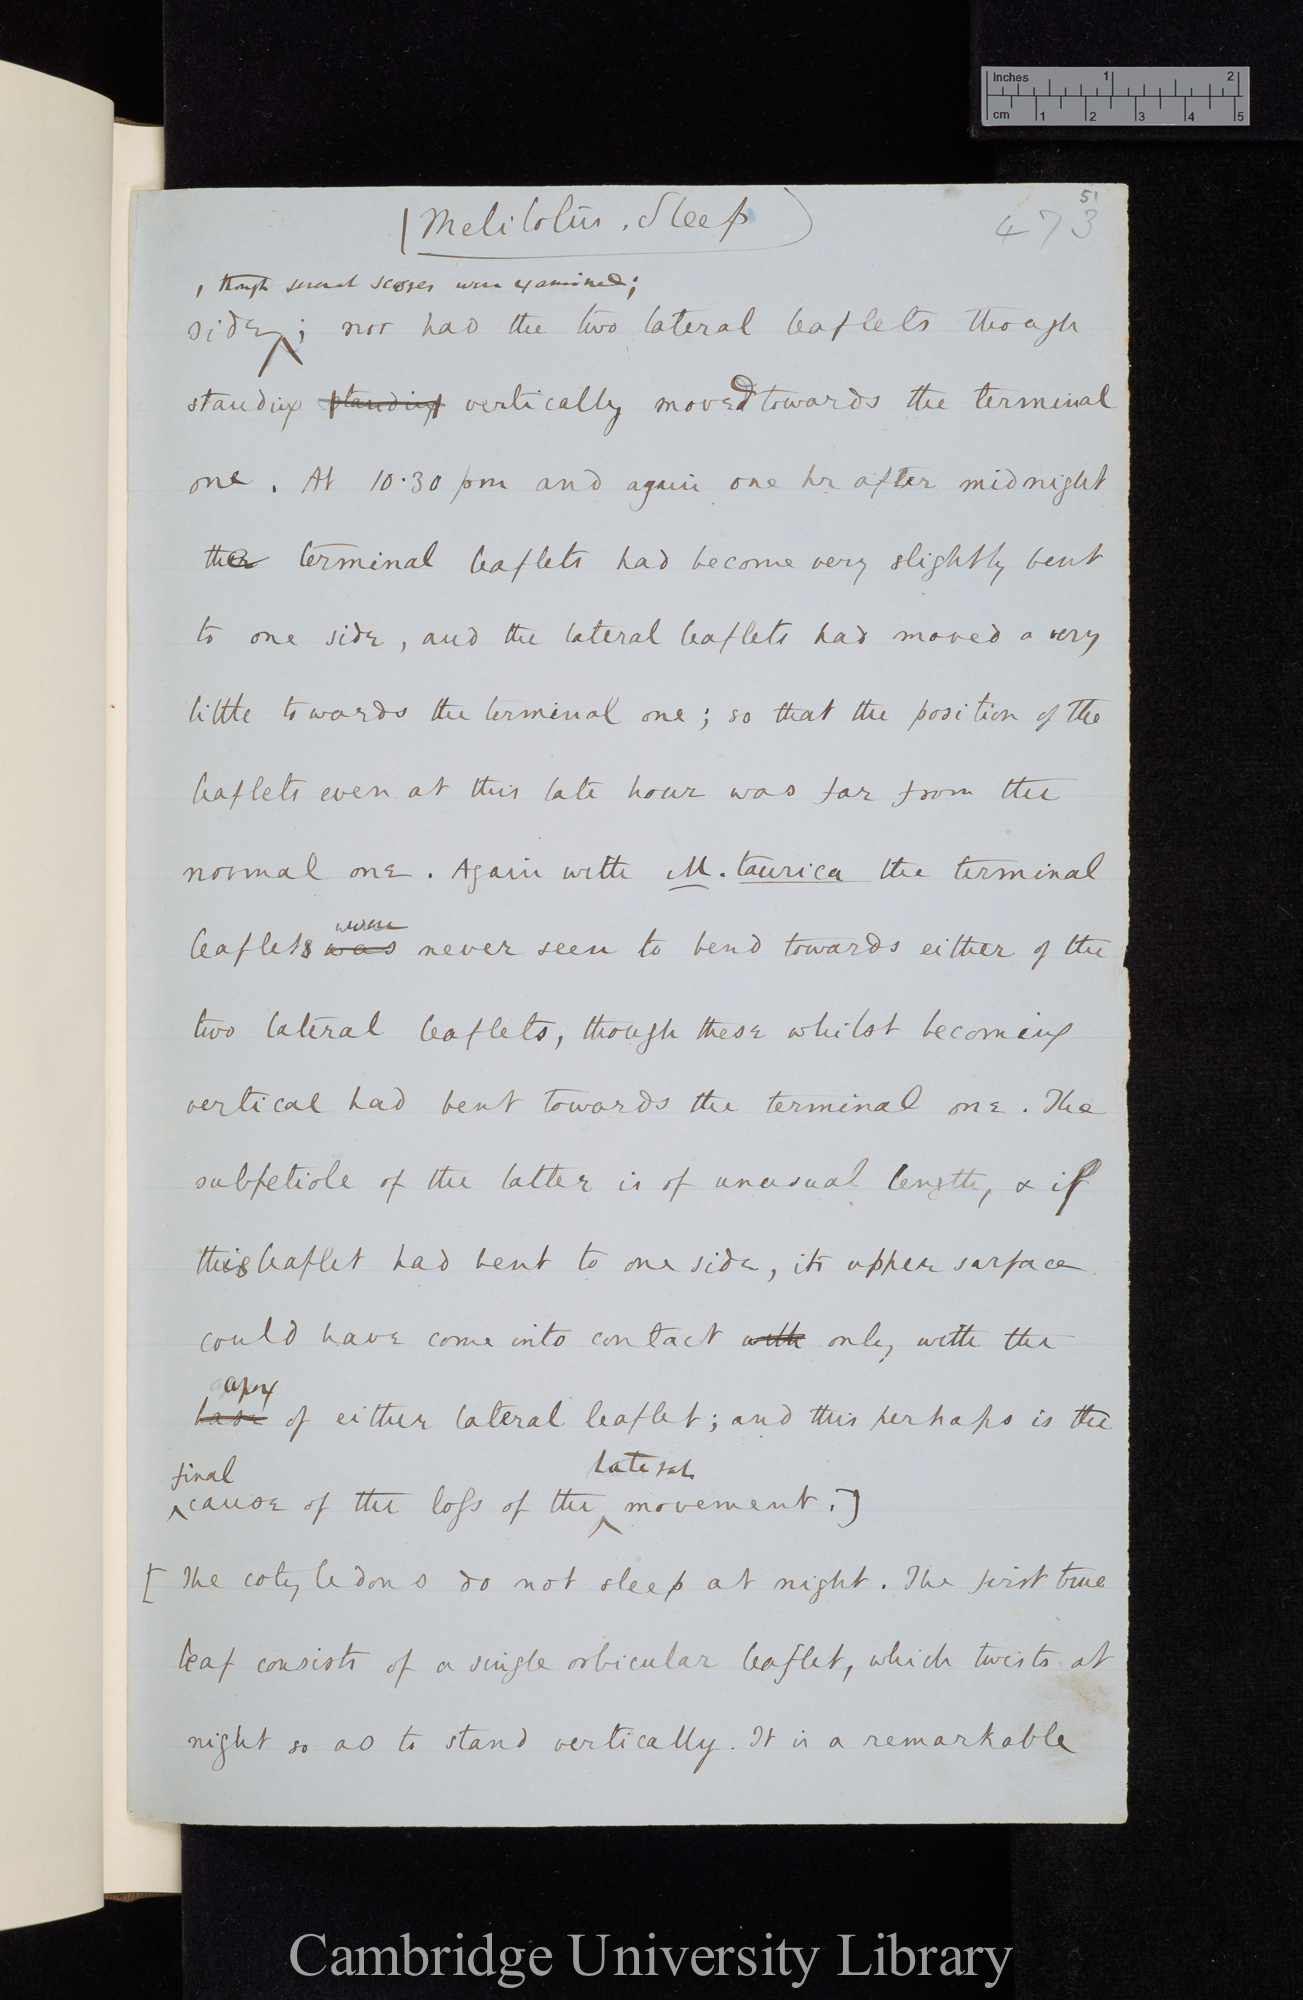 Inches 1 2
cm 1 2 3 4 5
51
(Melilotus. Sleep)
473
, though several scores were examined;
side; nor had the two lateral leaflets though
standing standing vertically moved towards the terminal
one. At 10·30 pm and again one hr after midnight
the terminal leaflets had become very slightly bent
to one side, and the lateral leaflets had moved a very
little towards the terminal one; so that the position of the
leaflets even at this late hour was far from the
normal one. Again with M. taurica the terminal
were
leaflets was never seen to bend towards either of the
two lateral leaflets, though these whilst becoming
vertical had bent towards the terminal one. The
subpetiole of the latter is of unusual length, & if
this leaflet had bent to one side, its upper surface
could have come into contact with only with the
apex
base of either lateral leaflet; and this perhaps is the
final lateral
cause of the loss of the movement.]
[The cotyledons do not sleep at night. The first true
leaf consists of a single orbicular leaflet, which twists at
night so as to stand vertically. It is a remarkable
Cambridge University Library